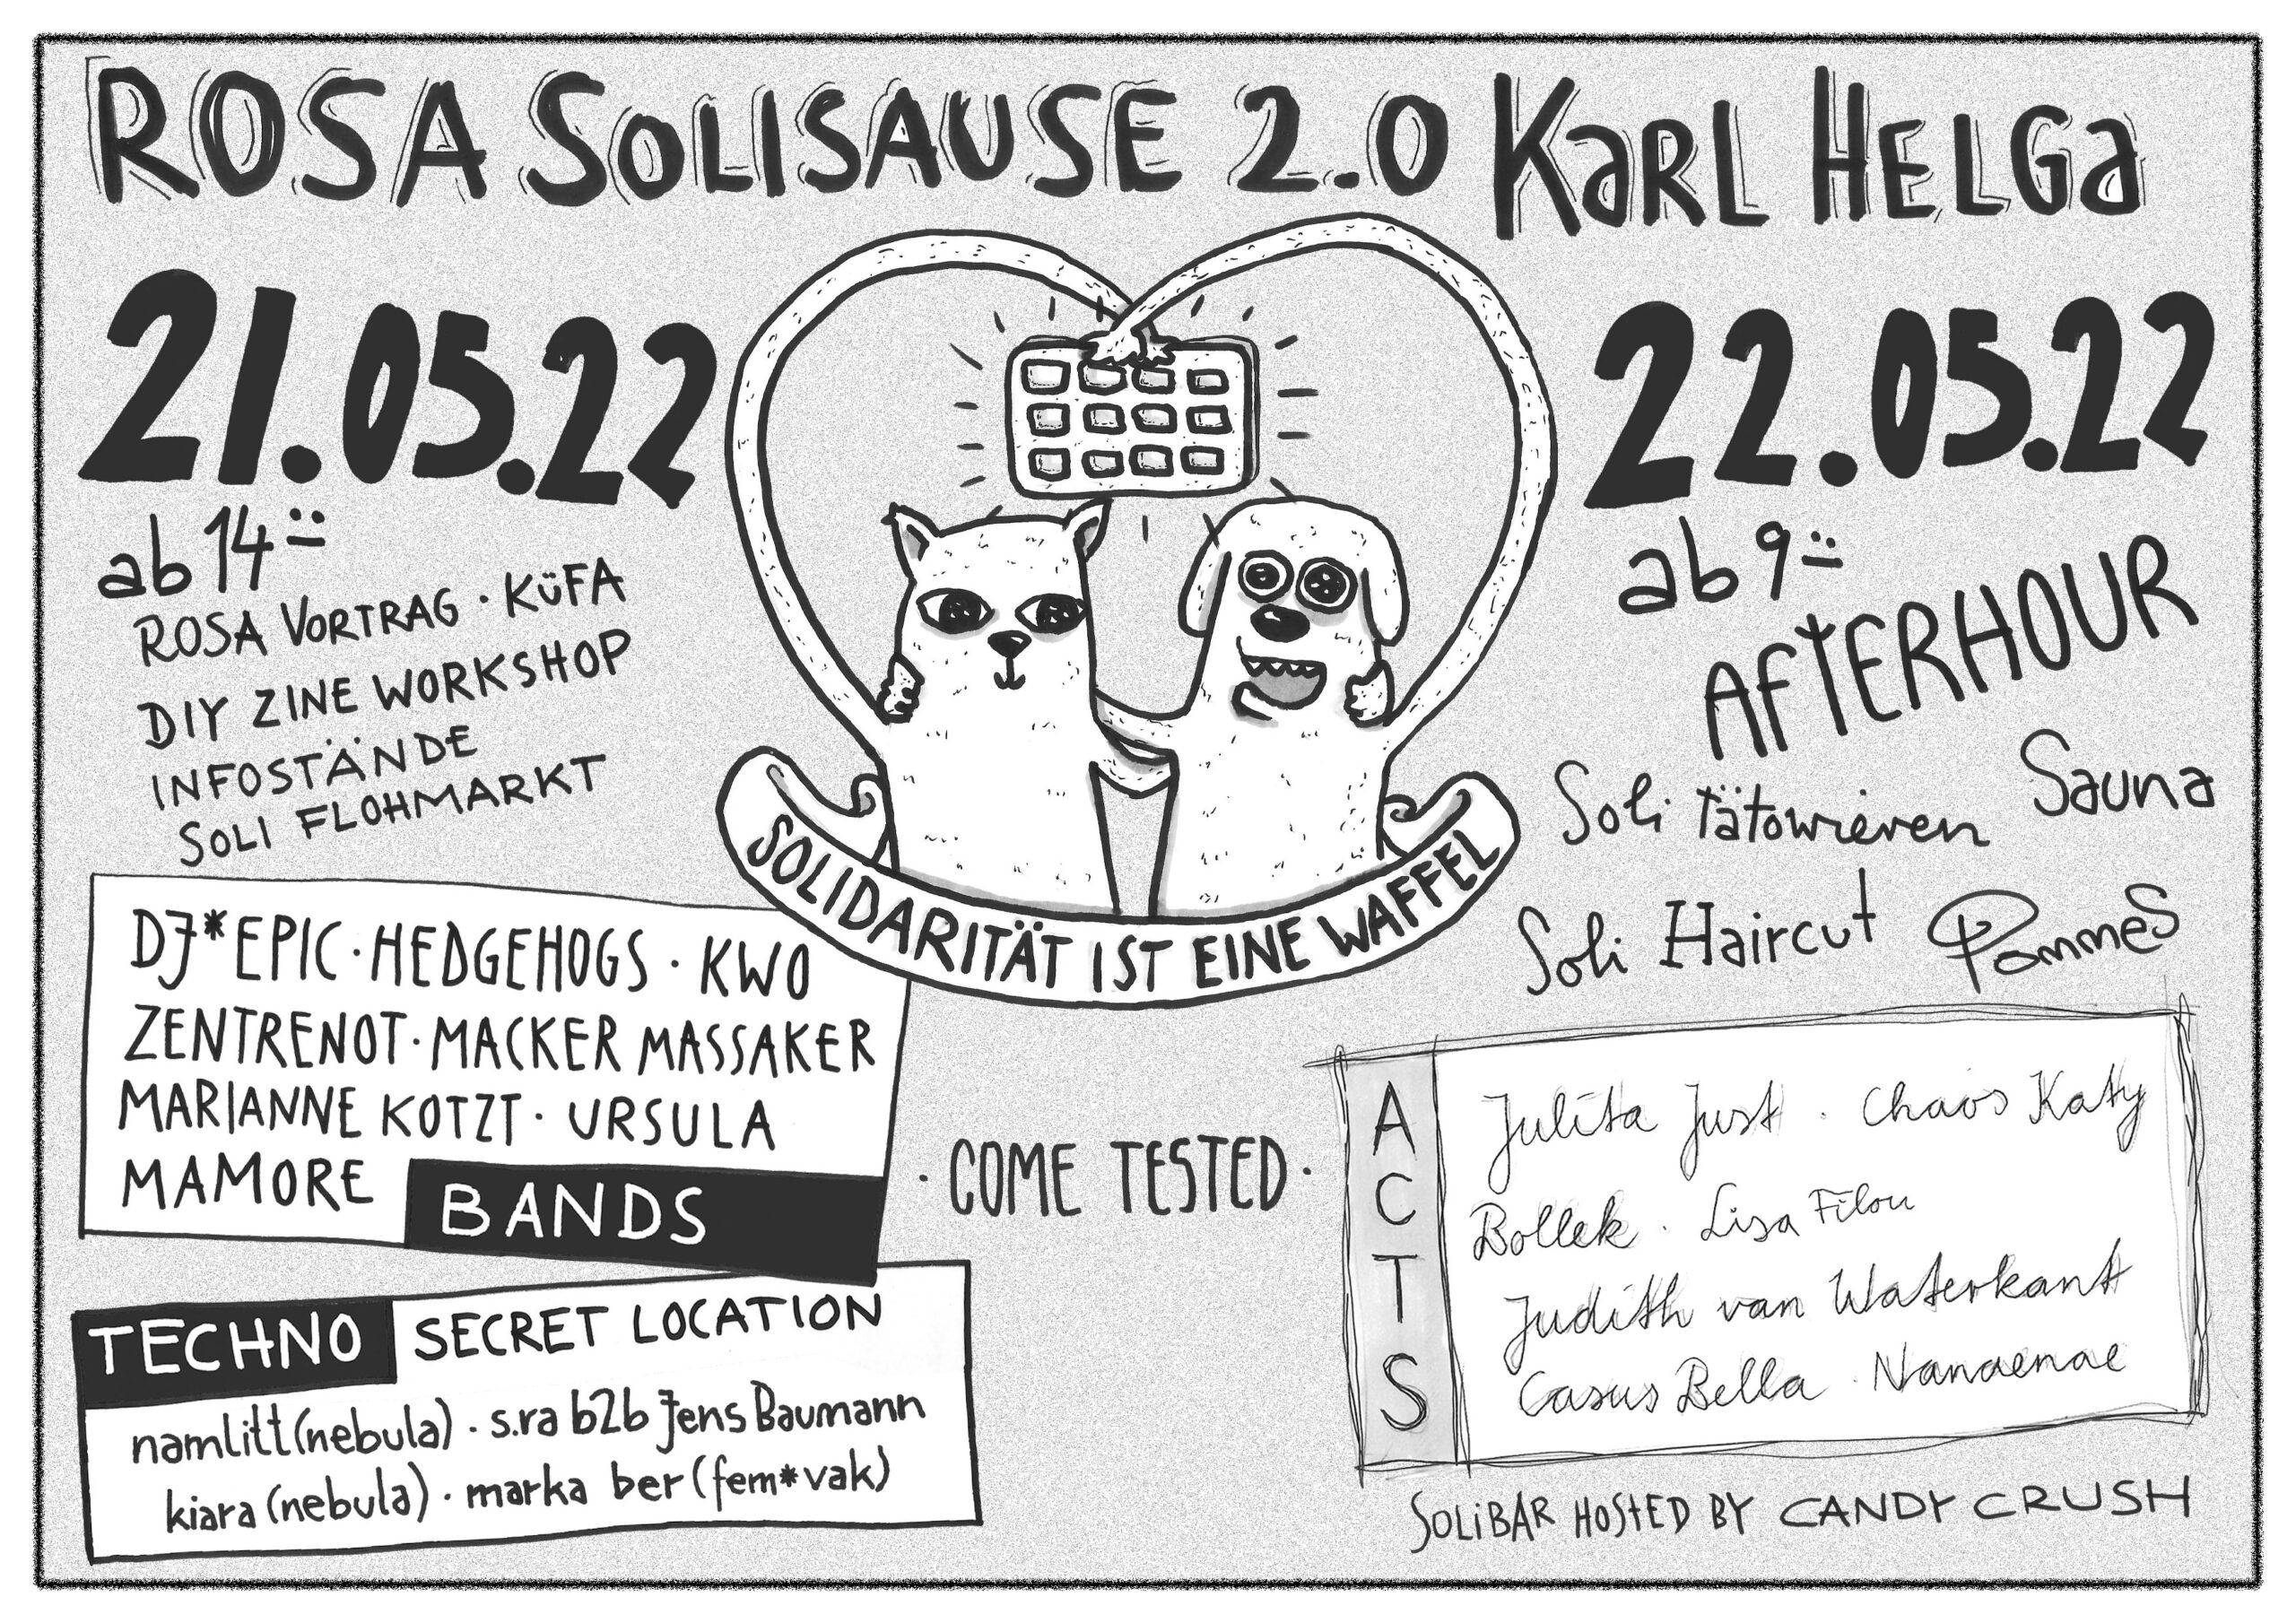 ROSA SOLISAUSE 2.0 KARL HELGA
21.05.22
ab 14:
ROSA VORTRAG · KÜFA
DIY ZINE WORKSHOP
INFOSTÄNDE
SOLI FLOHMARKT
DJ*EPIC · HEDGEHOGS · KWO
ZENTRENOT · MACKER MASSAKER
MARIANNE KOTZT · URSULA
MAMORE
BANDS
TECHNO SECRET LOCATION
namlitt (nebula) · s.ra b2b Jens Baumann
kiara (nebula) · marka ber (fem*vak)
SOLIDARITÄT IST EINE WAFFEL
· COME TESTED ·
22.05.22
ab 9:
AFTERHOUR
Soli tätowieren Sauna
Soli Haircut Pommes
ACTS
Julita Just · Chaos Katy
Bollek · Lisa Filou
Judith van Waterkant
Casus Bella · Nanaenae
SOLIBAR HOSTED BY CANDY CRUSH